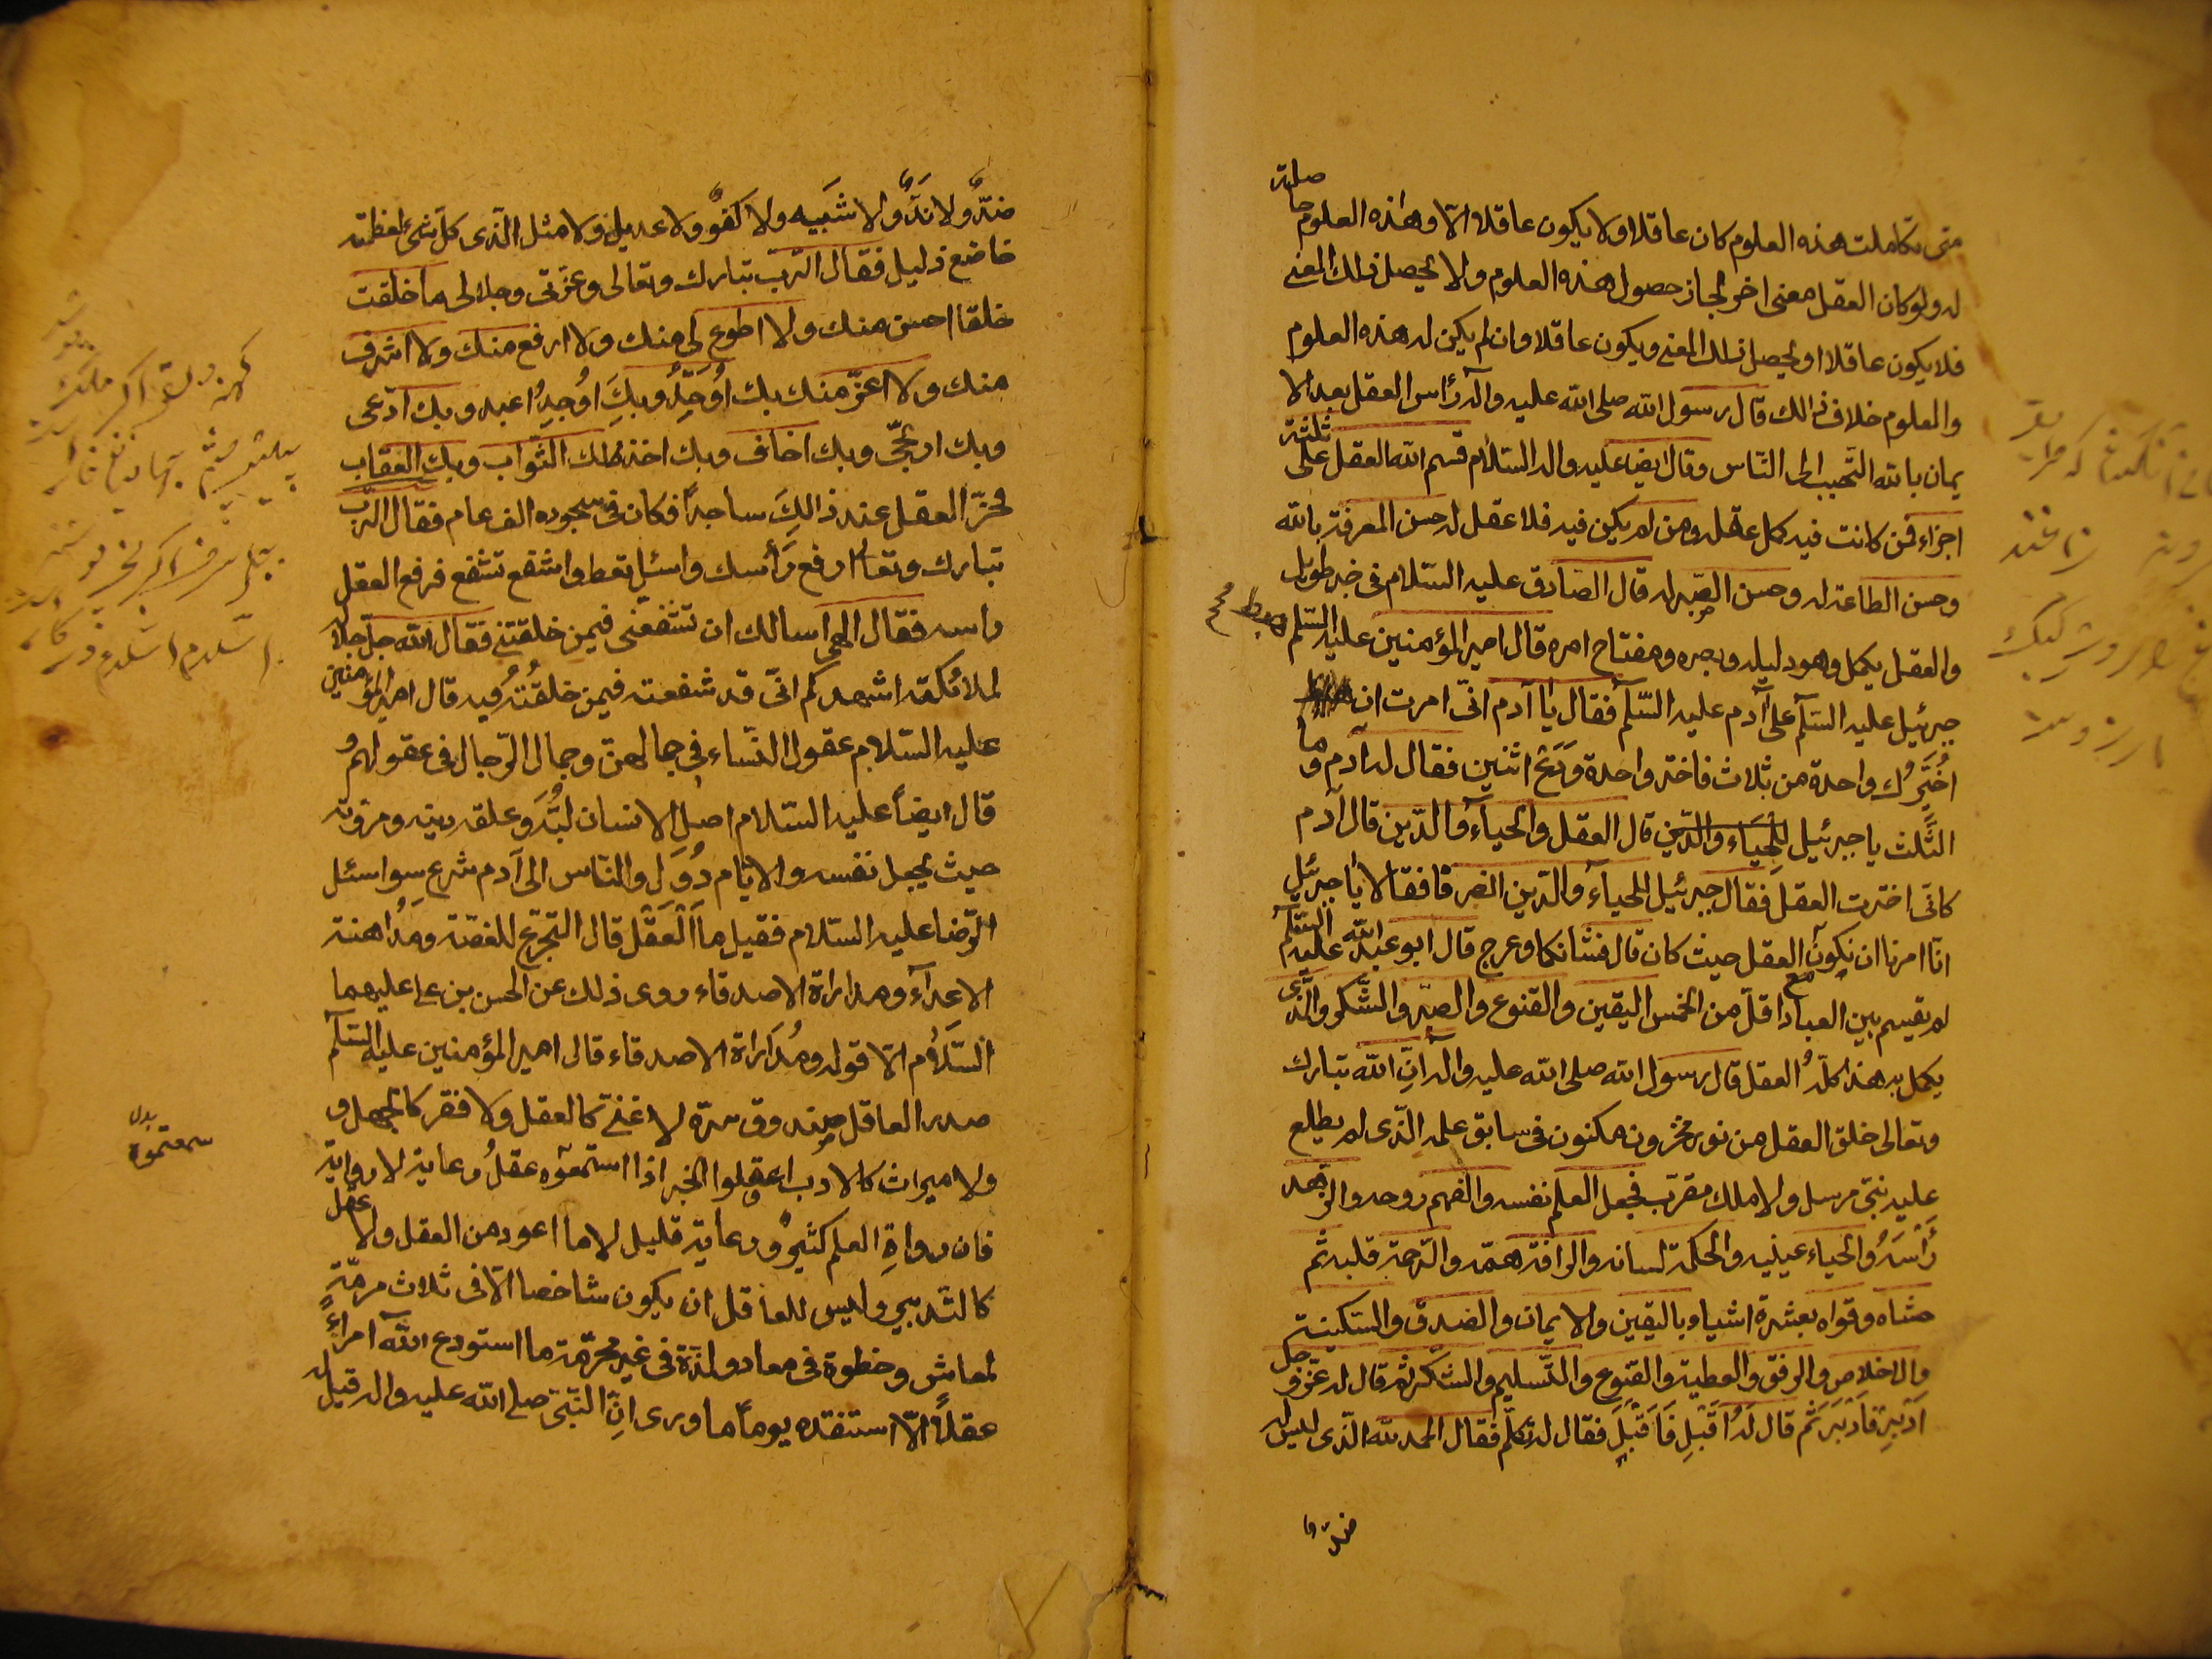 متى تكاملت هذه العلوم كان عاقلا ولا يكون عاقلا الا وهذه العلوم حاصلة
له ولو كان العقل معنى اخر لجاز حصول هذه العلوم ولا يحصل ذلك المعنى
فلا يكون عاقلا او يحصل ذلك المعنى ويكون عاقلا وان لم يكن له هذه العلوم
والمعلوم خلاف ذالك قال رسول الله صلى الله عليه وآله رأس العقل بعد الا
يمان بالله التحبب الى الناس وقال ايضا عليه واله السلام قسم الله العقل على ثلثة
اجزاء فمن كانت فيه كمل عقله ومن لم يكن فيه فلا عقل له حسن المعرفة بالله
وحسن الطاعة له وحسن الصبر له قال الصادق عليه السلام فى خبر طويل
والعقل يكمل وهو دليله وبصره ومفتاح امره قال امير المؤمنين عليه السلم هبط
جبرئيل عليه السلم على آدم عليه السلم فقال يا آدم انى امرت ان
اخيرك واحدة من ثلاث فاختر واحدة ودع اثنين فقال له آدم وما
الثلث يا جبرئيل الحياء والدين قال العقل والحيآء والدين قال آدم
كانى اخترت العقل فقال جبرئيل للحيآء والدين انصرفا فقالا يا جبرئيل
انا امرنا ان نكون مع العقل حيث كان قال فشانكما وعرج قال ابو عبد الله عليه السلم
لم يقسم بين العباد اقل من الخمس اليقين والقنوع والصبر والشكر والذى
يكمل به هذا كله العقل قال رسول الله صلى الله عليه وآله ان الله تبارك
وتعالى خلق العقل من نور مخزون مكنون فى سابق علمه الذى لم يطلع
عليه نبى مرسل ولا ملك مقرب فجعل العلم نفسه والفهم روحه والزهد
رأسه والحياء عينيه والحكمة لسانه والرافة همه والرحمة قلبه ثم
حشاه وقواه بعشرة اشياء باليقين والايمان والصدق والسكينة
والاخلاص والرفق والعطية والقنوع والتسليم والشكر ثم قال له عز وجل
ادبر فادبر ثم قال له اقبل فاقبل فقال له تكلم فقال الحمد لله الذى ليس له
ضد و
ضد ولا ند ولا شبيه ولا كفو ولا عديل ولا مثل الذى كل شئ لعظمته
خاضع ذليل فقال الرب تبارك وتعالى وعزتى وجلالى ما خلقت
خلقا احسن منك ولا اطوع لى منك ولا ارفع منك ولا اشرف
منك ولا اعز منك بك اوحد وبك اعبد وبك ادعى
وبك ارتجى وبك اخاف وبك احذر وبك الثواب وبك العقاب
فخر العقل عند ذالك ساجدا فكان فى سجوده الف عام فقال الرب
تبارك وتعالى ارفع رأسك واسئل تعط واشفع تشفع فرفع العقل
راسه فقال الهى اسالك ان تشفعنى فيمن خلقتنى فقال الله جل جلاله
لملائكته اشهدكم انى قد شفعته فيمن خلقته فيه قال امير المؤمنين
عليه السلام عقول النساء فى جمالهن وجمال الرجال فى عقولهم و
قال ايضا عليه السلام اصل الانسان لبه وعقله دينه ومروته
حيث يجعل نفسه والايام دول والناس الى آدم شرع سوا سئل
الرضا عليه السلام فقيل ما العقل قال التجرع للغصة ومداهنة
الاعدآء ومداراة الاصدقاء روى ذلك عن الحسن بن على عليهما
السلام الا قوله ومداراة الاصدقاء قال امير المؤمنين عليه السلم
صدر العاقل صندوق سره لا غنى كالعقل ولا فقر كالجهل و
ولا ميراث كالادب اعقلوا الخبر اذا استمعتموه عقل رعاية لا رواية
سمعتموه بدل
فان رواة العلم كثير ورعاته قليل لا مال اعود من العقل ولا عقل
كالتدبير وليس للعاقل ان يكون شاخصا الا فى ثلاث مرمة
لمعاش وخطوة فى معاد ولذة فى غير محرمة ما استودع الله امراء
عقلا الا استنقذه يوما ما وروى ان النبى صلى الله عليه واله قيل له